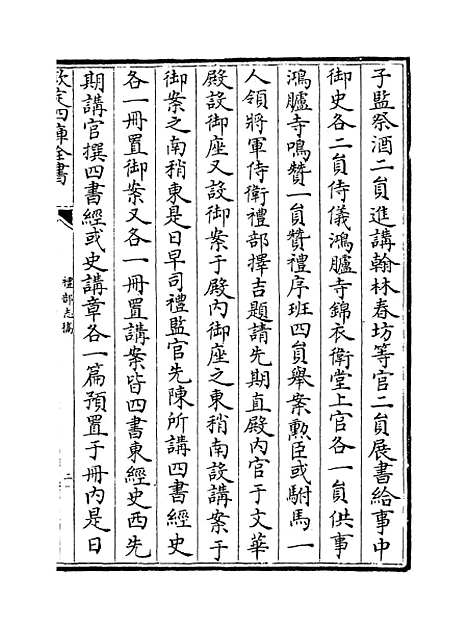 子監祭酒二員進講翰林春坊等官二員展書給事中
御史各二員侍儀鴻臚寺錦衣衛堂上官各一員供事
鴻臚寺鳴贊一員贊禮序班四員舉案勲臣或駙馬一
人領將軍侍衛禮部擇吉題請先期直殿内官于文華
殿設御座又設御案于殿内御座之東稍南設講案于
御案之南稍東是日早司禮監官先陳所講四書經史
各一冊置御案又各一冊置講案皆四書東經史西先
期講官撰四書經或史講章各一篇預置于冊内是日
欽定四庫全書
禮部志稿